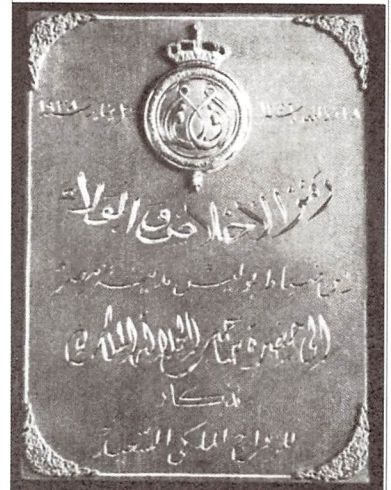 ٢٠ يناير سنة ١٩٣٨
رمز الاخلاص والولاء
من ضباط بوليس مدينة مصر
الى حضرة صاحب الجلالة الملك
تذكار
للزواج الملكى السعيد